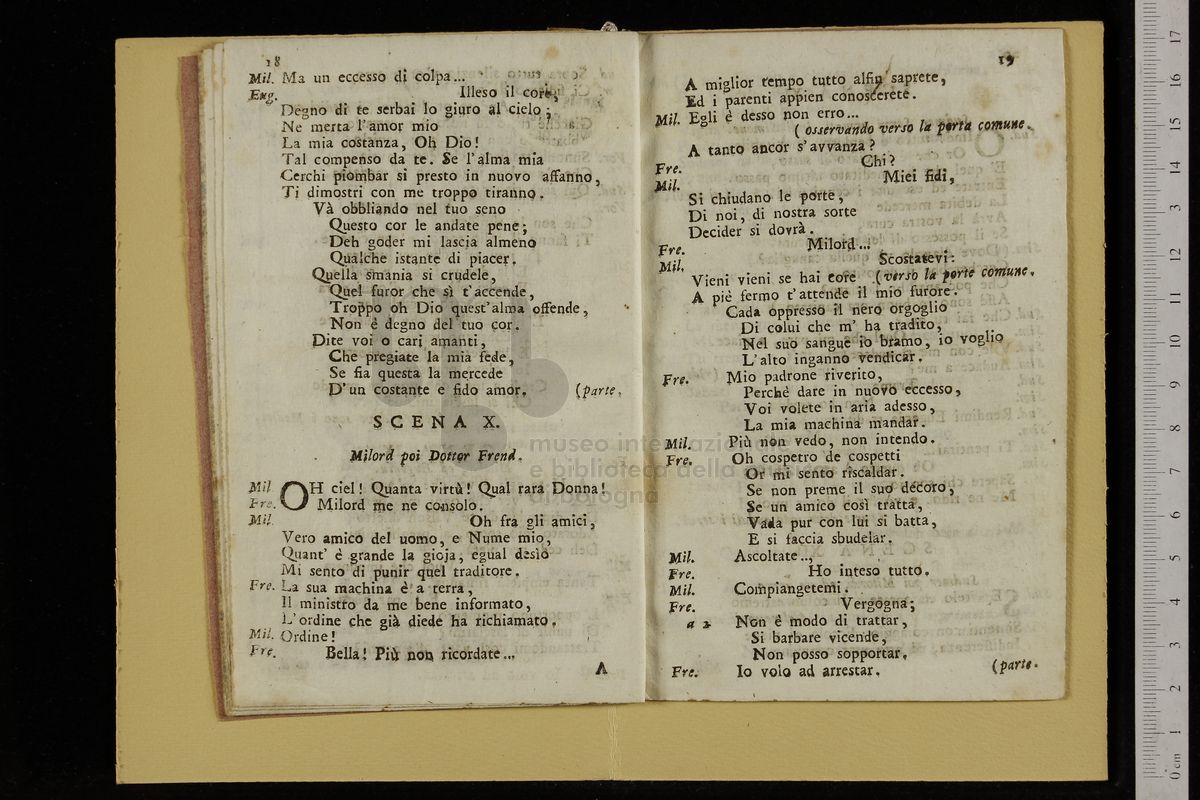 18
Mil. Ma un eccesso di colpa...
Eug. Illeso il core,
Degno di te serbai lo giuro al cielo;
Ne merta l'amor mio
La mia costanza, Oh Dio!
Tal compenso da te. Se l'alma mia
Cerchi piombar si presto in nuovo affanno,
Ti dimostri con me troppo tiranno.
Và obbliando nel tuo seno
Questo cor le andate pene;
Deh goder mi lascia almeno
Qualche istante di piacer.
Quella smania si crudele,
Quel furor che sì t'accende,
Troppo oh Dio quest'alma offende,
Non è degno del tuo cor.
Dite voi o cari amanti,
Che pregiate la mia fede,
Se fia questa la mercede
D'un costante e fido amor. (parte.
SCENA X.
Milord poi Dottor Frend.
Mil OH ciel! Quanta virtù! Qual rara Donna!
Fre. Milord me ne consolo.
Mil. Oh fra gli amici,
Vero amico del uomo, e Nume mio,
Quant' è grande la gioja, egual desìo
Mi sento di punir quel traditore.
Fre. La sua machina è a terra,
Il ministro da me bene informato,
L'ordine che già diede ha richiamato.
Mil. Ordine!
Fre. Bella! Più non ricordate...
A
19
A miglior tempo tutto alfin saprete,
Ed i parenti appien conoscerete.
Mil. Egli è desso non erro...
( osservando verso la porta comune.
A tanto ancor s'avvanza?
Fre. Chi?
Mil. Miei fidi,
Si chiudano le porte,
Di noi, di nostra sorte
Decider si dovrà.
Fre. Milord...
Mil. Scostatevi:
Vieni vieni se hai core (verso la porte comune.
A piè fermo t'attende il mio furore.
Cada oppresso il nero orgoglio
Di colui che m' ha tradito,
Nel suo sangue io bramo, io voglio
L'alto inganno vendicar.
Fre. Mio padrone riverito,
Perchè dare in nuovo eccesso,
Voi volete in aria adesso,
La mia machina mandar.
Mil. Più non vedo, non intendo.
Fre. Oh cospetro de cospetti
Or mi sento riscaldar.
Se non preme il suo decoro,
Se un amico così tratta,
Vada pur con lui si batta,
E si faccia sbudelar.
Mil. Ascoltate...
Fre. Ho inteso tutto.
Mil. Compiangetemi.
Fre. Vergogna;
a 2 Non è modo di trattar,
Si barbare vicende,
Non posso sopportar.
Fre. Io volo ad arrestar. (parte.
museo internazionale
e biblioteca della
di bologna
0 cm 1 2 3 4 5 6 7 8 9 10 11 12 13 14 15 16 17